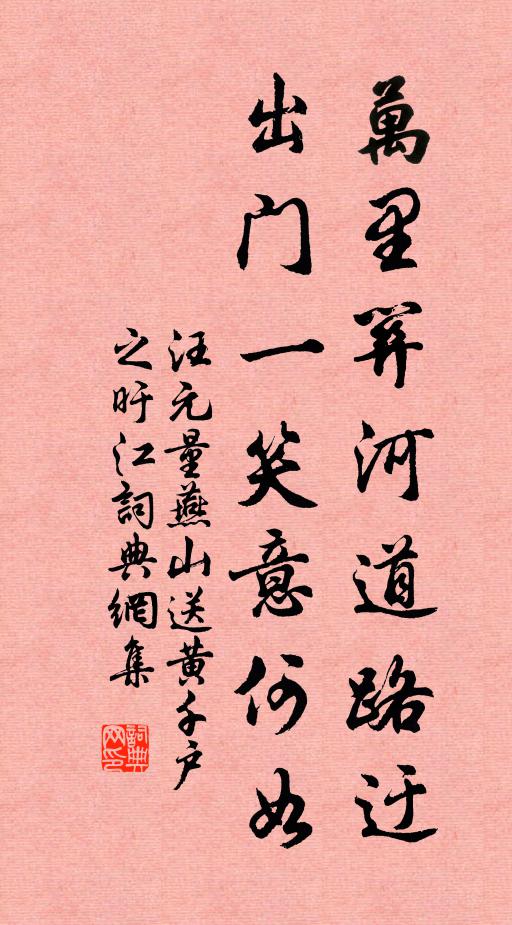 萬里關河道路迂
出門一笑意何如
汪元量燕山送黃千户
之盱江詞典網集
詞典网印